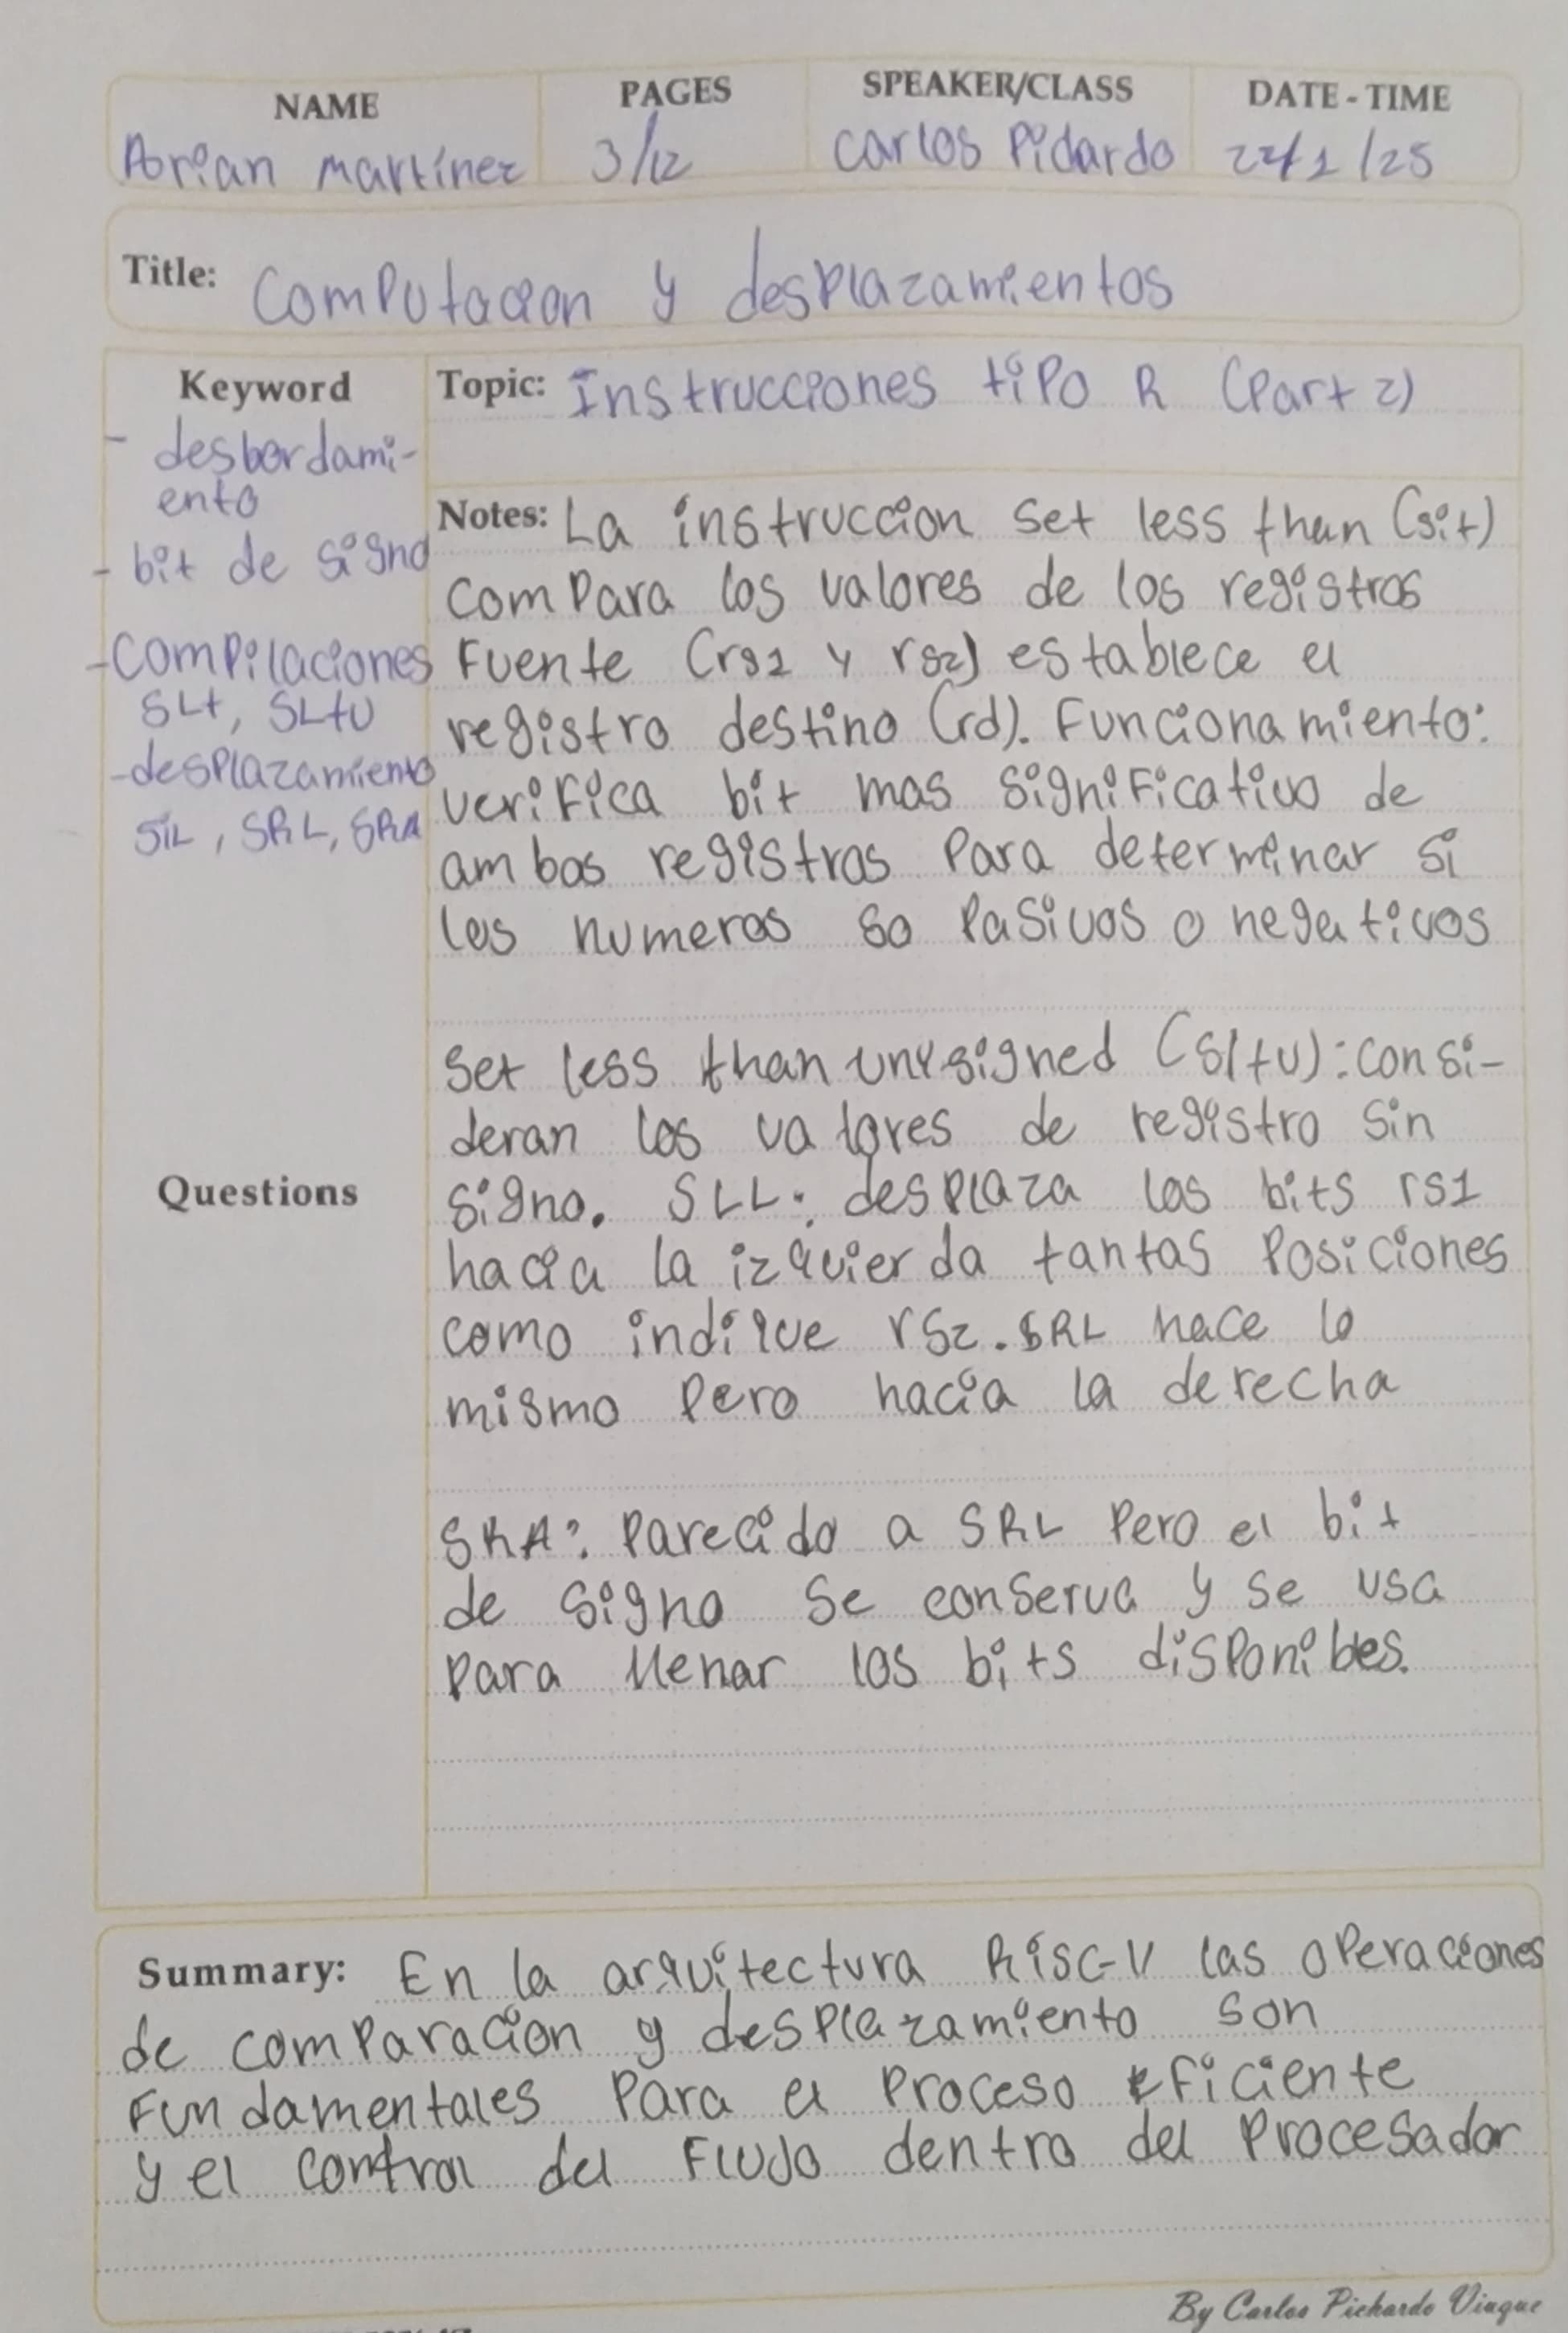 NAME PAGES SPEAKER/CLASS DATE - TIME
Adrian Martínez 3/12 Carlos Pidardo /1/25
Title: Computacion y desplazamientos
Keyword
- desbordami-
ento
- bit de signo
- Compilaciones
SLt, SLtU
- desplazamiento
SiL, SRL, SRA
Topic: Instrucciones tipo R (Part 2)
Notes: La instruccion set less than (sit)
compara los valores de los registros
Fuente (rs1 y rs2) establece el
registro destino (rd). Funcionamiento:
verifica bit mas significativo de
ambos registros para determinar si
los numeros so pasivos o negativos
Set less than unsigned (sltu): consi-
deran los valores de registro sin
signo. SLL: desplaza los bits rs1
hacia la izquierda tantas posiciones
como indique rs2. SRL hace lo
mismo pero hacia la derecha
SRA: parecido a SRL pero el bit
de signo se conserva y se usa
para llenar los bits disponibles.
Questions
Summary: En la arquitectura RISC-V las operaciones
de comparacion y desplazamiento son
Fundamentales para el proceso eficiente
y el control del Flujo dentro del procesador
By Carlos Pichardo Viuque